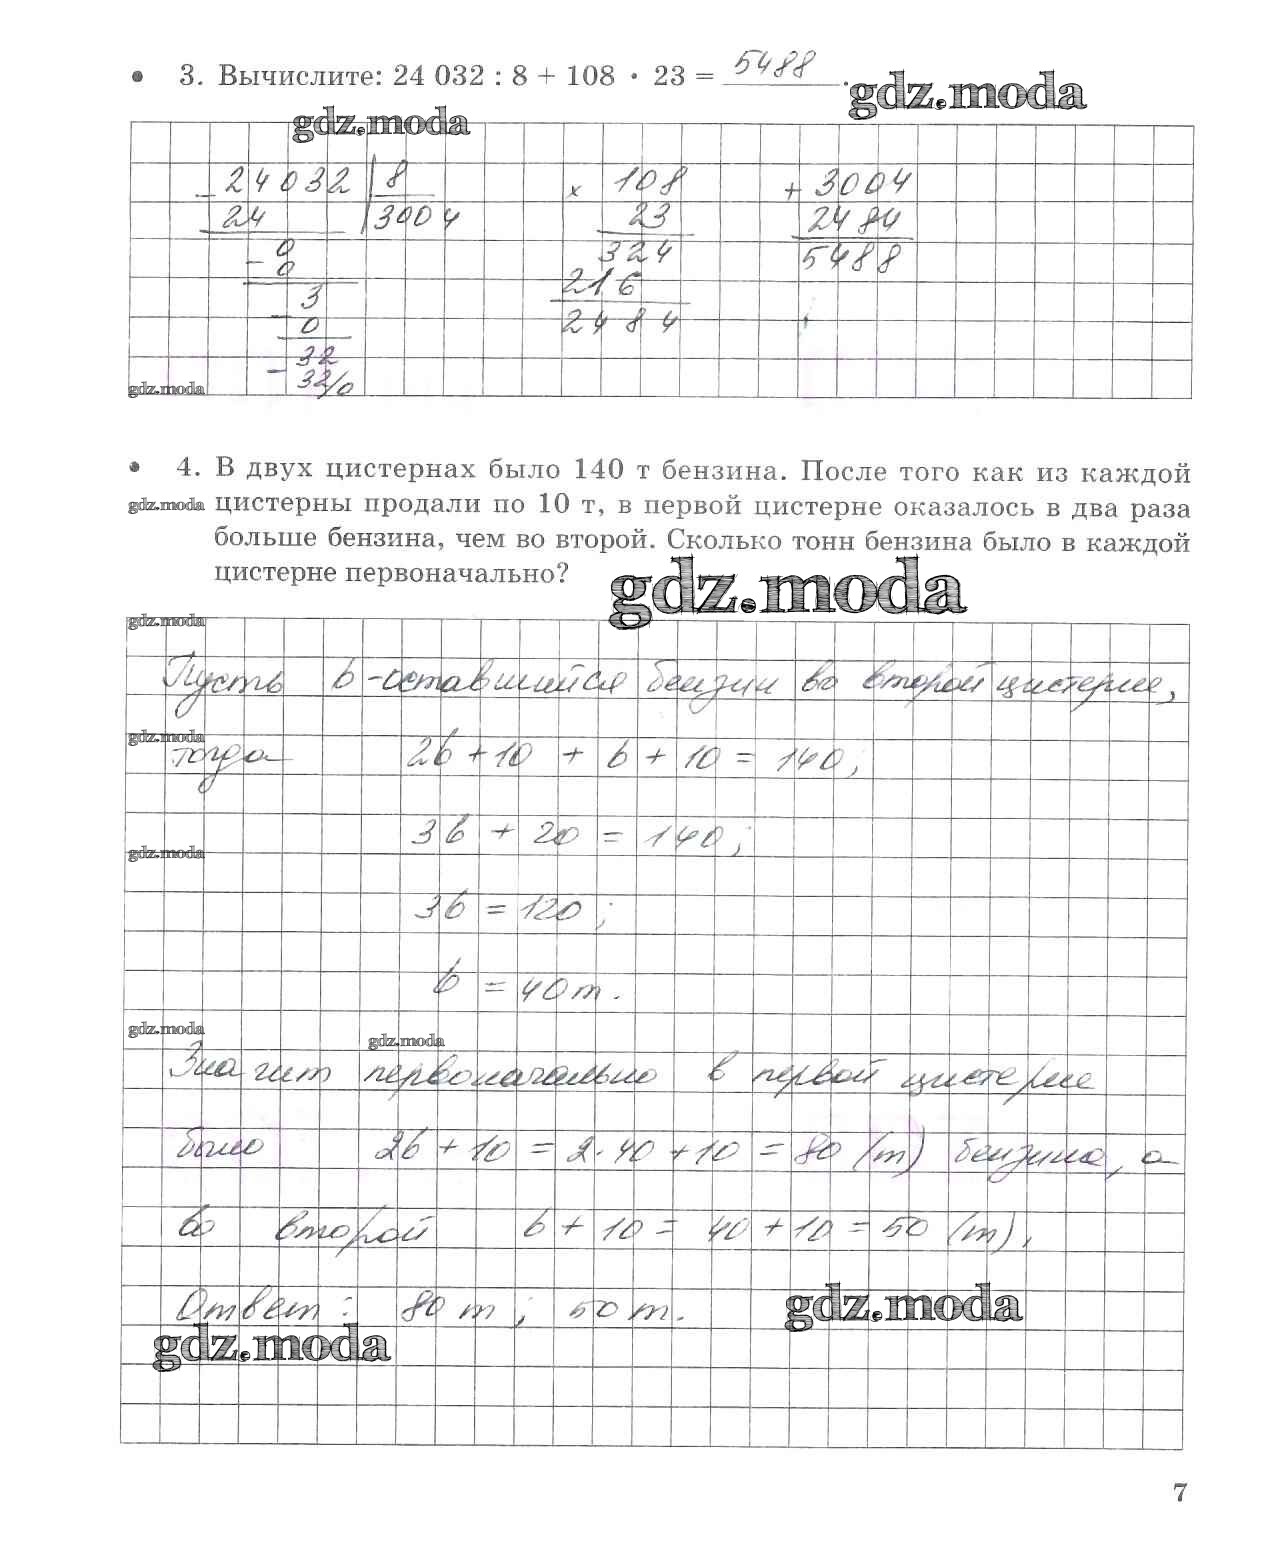 • 3. Вычислите: 24 032 : 8 + 108 · 23 = 5488.
gdz.moda
gdz.moda
24032 | 8
24
3004
0
0
3
0
32
32/0
× 108
23
324
216
2484
+ 3004
2484
5488
gdz.moda
• 4. В двух цистернах было 140 т бензина. После того как из каждой
gdz.moda цистерны продали по 10 т, в первой цистерне оказалось в два раза
больше бензина, чем во второй. Сколько тонн бензина было в каждой
цистерне первоначально?
gdz.moda
gdz.moda
Пусть b - оставшийся бензин во второй цистерне,
gdz.moda
тогда 2b + 10 + b + 10 = 140;
3b + 20 = 140;
gdz.moda
3b = 120;
b = 40 т.
gdz.moda
gdz.moda
Значит первоначально в первой цистерне
было 2b + 10 = 2·40 + 10 = 80 (т) бензина, а
во второй b + 10 = 40 + 10 = 50 (т).
Ответ: 80 т; 50 т.
gdz.moda
gdz.moda
7